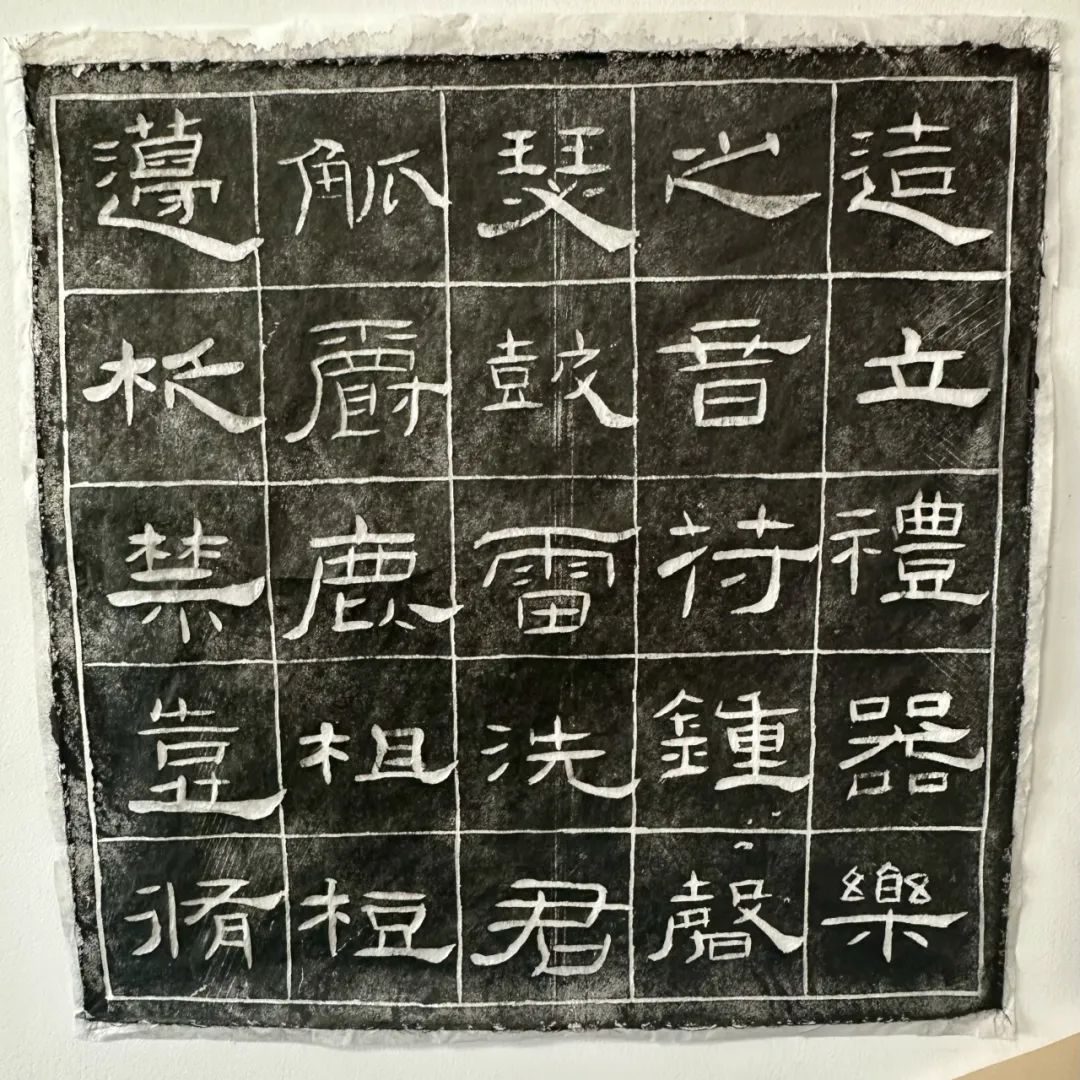 造立禮器樂
之音苻鍾磬
瑟鼓雷洗君
觚爵鹿柤梪
籩柉禁壺脩